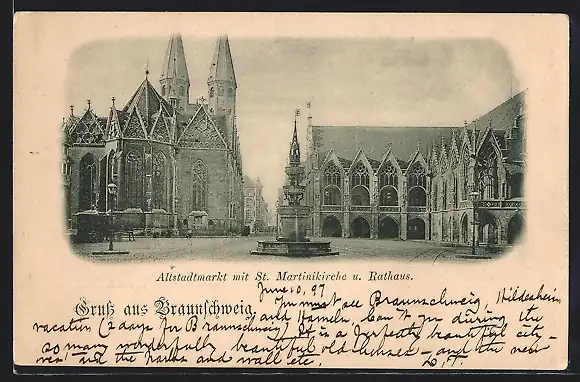 Altstadtmarkt mit St. Martinikirche u. Rathaus.
Gruß aus Braunschweig,
June 10, 97
You must see Braunschweig, Hildesheim
and Hameln. Can't you during the
vacation (2 days for Braunschweig) It is a perfectly beautiful city -
so many wonderfully beautiful old houses - and the new
and the parks and walls etc.